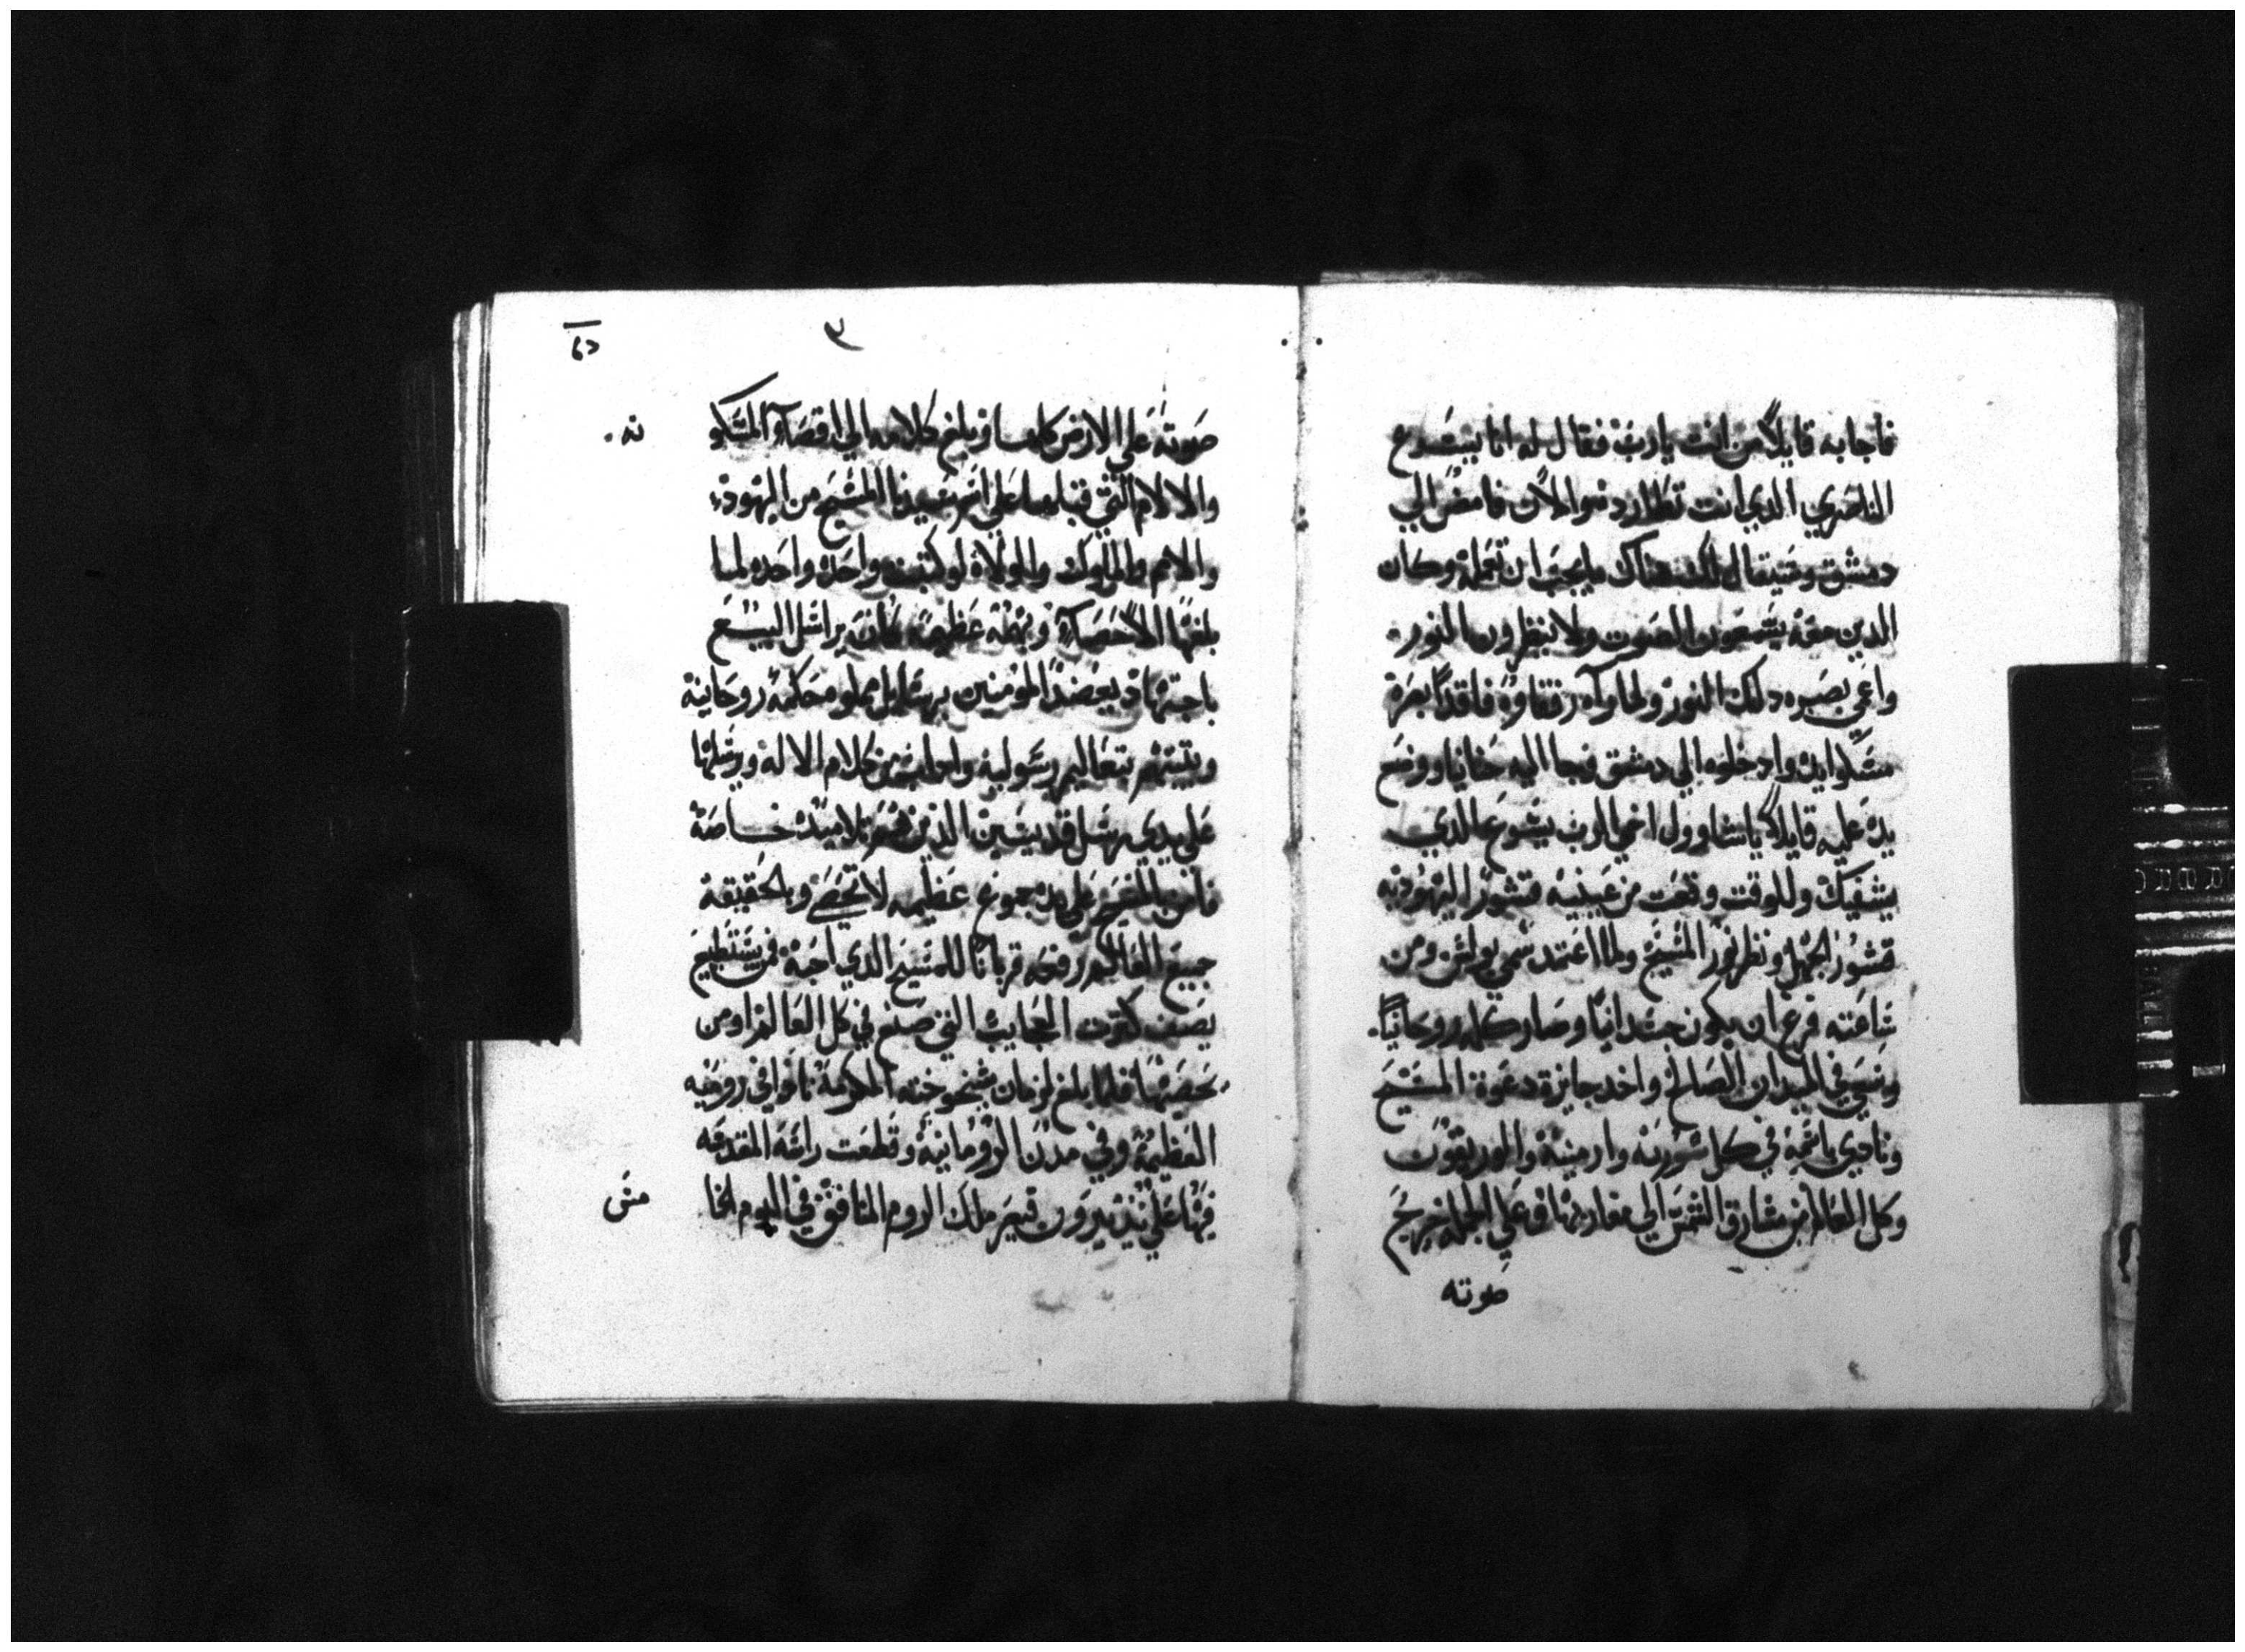 فاجابه قايلاً من انت يارب فقال له انا يشوع
الناصري الدي انت تطارد نوالان فامض الي
دمشق وسيقال لك هناك ما يجب ان تعمله وكان
الدين معه يسمعون الصوت ولا ينظرون النور
واعمي بصره دلك النور ولما راه رفقاوه فاقداً بصره
مسكوا يده وادخلوه الي دمشق فجا اليه حنانيا ووضع
يده عليه قايلاً ياشاوول اخي الرب يشوع الدي
يشفيك وللوقت وقعت من عينيه قشور اليهوديه
قشور الجهل ونظر نور المسيح ولما اعتمد سمي بولس ومن
ساعته فرغ ان يكون جسدانياً وصار كله روحانياً
وسعي في الميدان الصالح واخد جايزة دعوة المسيح
ونادي باسمه في كل سورية وارمينية
وكل العالم من مشارق الشمس الي مغاربها وعلي الجمله خرج
صوته
٣
صوته علي الارض كلها وبلغ كلامه الي اقصا المسكو
نه
والالام التي قبلها علي اسم سيدنا المسيح من اليهود
والامم والملوك والولاة لو كتبت واحده واحده لما
بلغها الاحصا عظيمه كان يراسل البيع
باجتهاد يعضد المومنين برسايل مملو حكمة روحانية
بتعاليم رسولية من كلام الاله ويرسلها
علي يدي رسل قديسين الدين هم تلاميده خاصة
فامن بالمسيح علي يده جموع عظيمه لا تحصي وبالحقيقة
جميع العالم رفعه قرباناً للمسيح الدي احبه فمن يستطيع
يصف كثرت العجايب التي صنع في كل العالم او من
يحصيها فلما بلغ لزمان شيخوخته المكرمة في روميه
العظيمة وفي مدن الرومانية وقطعت راسه المقدسه
فيها علي يد نيرون قيصر ملك الروم المنافق في اليوم الخا
مس